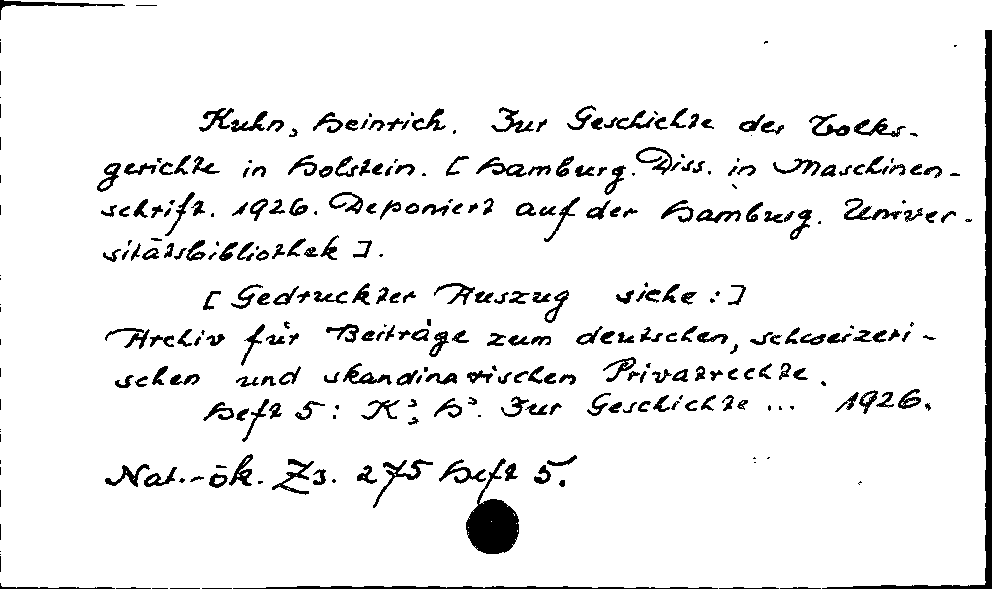 Kuhn, Heinrich. Zur Geschichte der Volks-
gerichte in Holstein. [Hamburg. Diss. in Maschinen-
schrift. 1926. Deponiert auf der Hamburg. Univer-
sitätsbibliothek].
[Gedruckter Auszug siehe:]
Archiv für Beiträge zum deutschen, schweizeri-
schen und skandinavischen Privatrechte.
Heft 5: K², H². Zur Geschichte ... 1926.
Nat.-ök. Zs. 275 Heft 5.